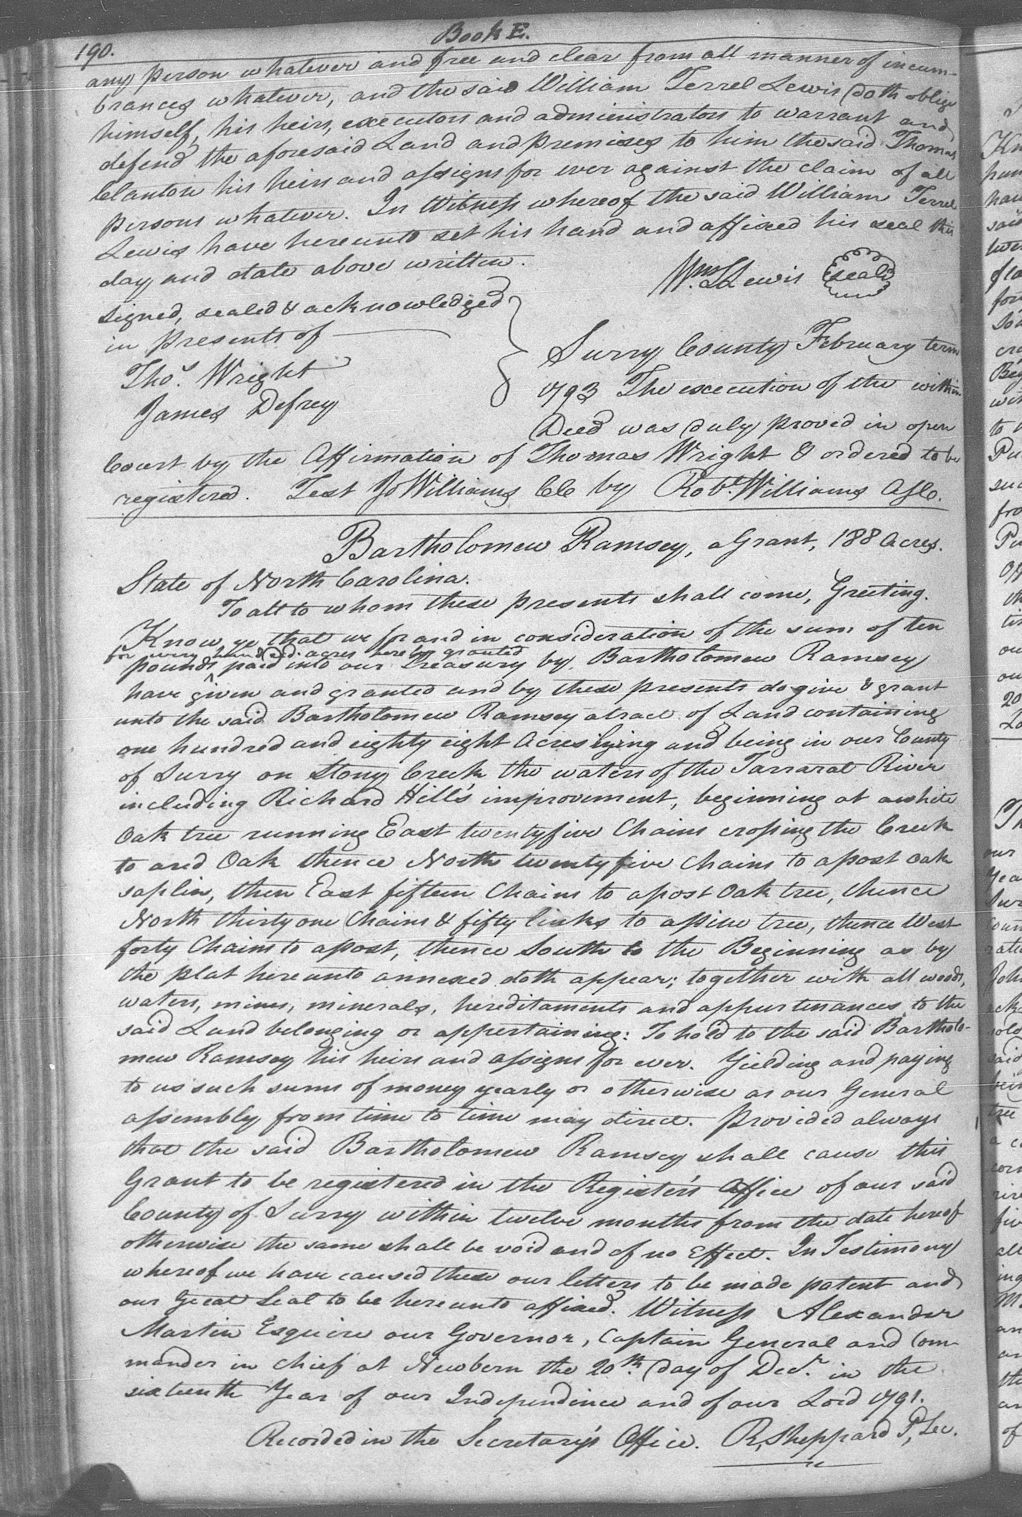 190.
Book E.
any person whatever and free and clear from all manner of incum-
brances whatever, and the said William Terrel Lewis doth oblige
himself, his heirs, executors and administrators to warrant and
defend the aforesaid Land and premises to him the said Thomas
Clanton his heirs and assigns for ever against the claim of all
persons whatever. In Witness whereof the said William Terrel
Lewis have hereunto set his hand and affixed his seal the
day and date above written.
Wm. T. Lewis (seal)
signed, sealed & acknowledged
in presents of
Thos. Wright
James Defrey
Surry County February term
1793 The execution of the within
Deed was duly proved in open
Court by the Affirmation of Thomas Wright & ordered to be
registered. Test Jo Williams CC by Robt. Williams
Bartholomew Ramsey, a Grant, 188 Acres.
State of North Carolina.
To all to whom these presents shall come, Greeting.
Know ye that we for and in consideration of the sum of ten
for every hundred acres hereby granted
pounds paid into our Treasury by Bartholomew Ramsey
have given and granted and by these presents do give & grant
unto the said Bartholomew Ramsey a tract of Land containing
one hundred and eighty eight Acres lying and being in our County
of Surry on Stony Creek the waters of the Tarrarat River
including Richard Hill's improvement, beginning at a white
Oak tree running East twenty five Chains crossing the Creek
to a red Oak thence North twenty five Chains to a post oak
saplin, then East fifteen Chains to a post Oak tree, thence
North thirty one Chains & fifty links to a pine tree, thence West
forty Chains to a post, thence South to the Beginning as by
the plat hereunto annexed doth appear; together with all woods,
waters, mines, minerals, hereditaments and appurtenances to the
said Land belonging or appertaining: To hold to the said Bartholo-
mew Ramsey his heirs and assigns for ever. Yielding and paying
to us such sums of money yearly or otherwise as our General
assembly from time to time may direct. Provided always
that the said Bartholomew Ramsey shall cause this
Grant to be registered in the Register's Office of our said
County of Surry within twelve months from the date hereof
otherwise the same shall be void and of no Effect. In Testimony
whereof we have caused these our letters to be made patent and
our Great Seal to be hereunto affixed. Witness Alexander
Martin Esquire our Governor, Captain General and Com-
mander in chief at Newbern the 20th. day of Decr. in the
sixteenth Year of our Independence and of our Lord 1791.
Recorded in the Secretary's Office. R, Sheppard P, Sec.